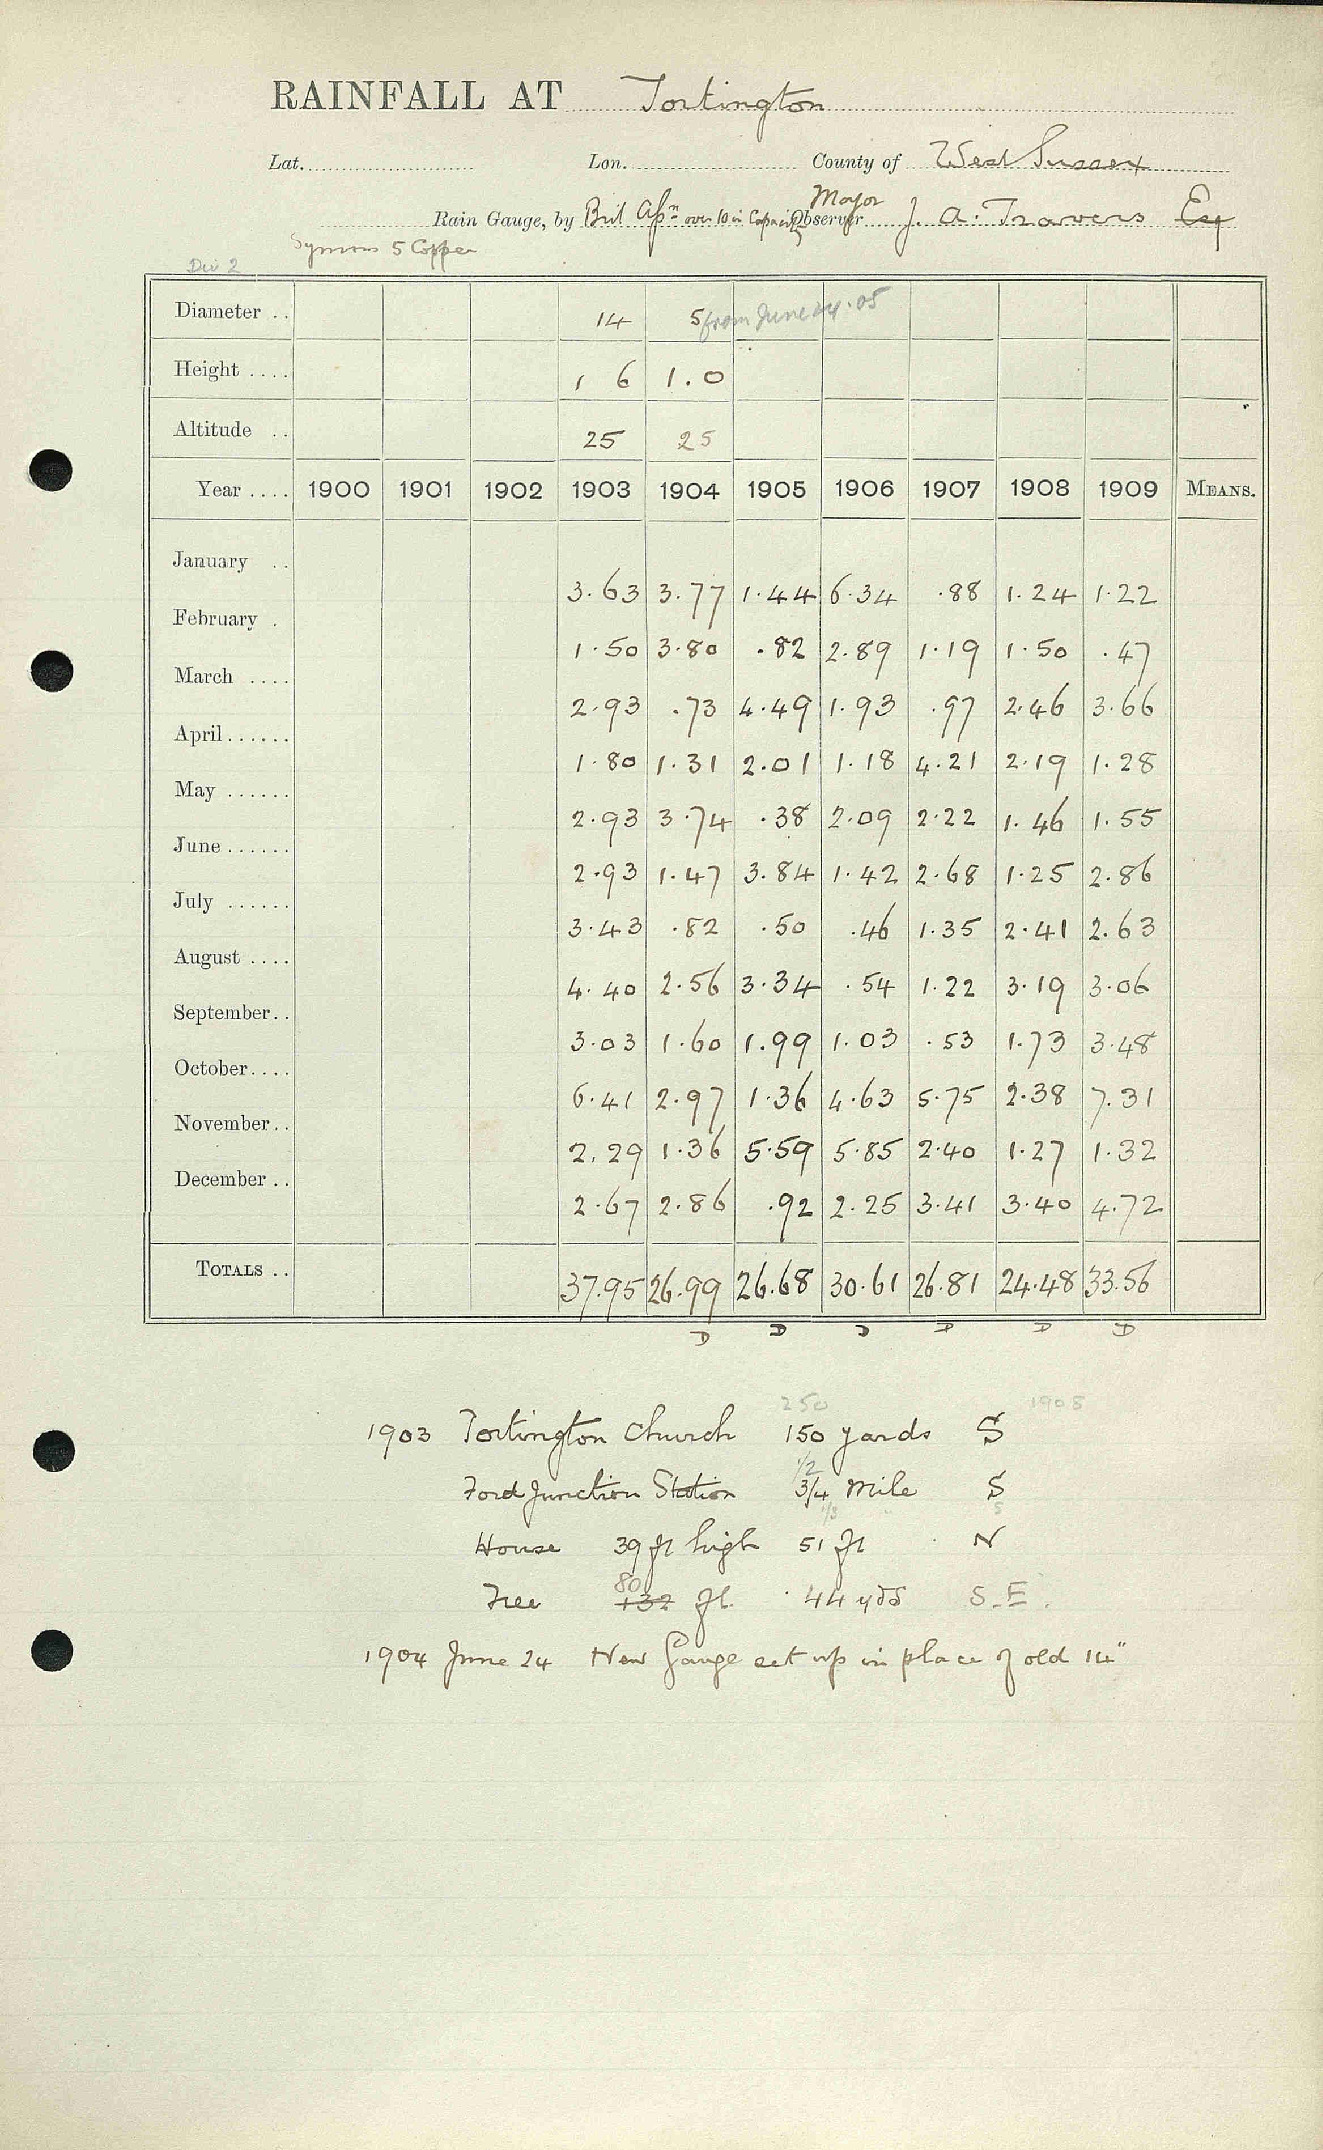 RAINFALL AT Tortington
Lat. Lon. County of West Sussex
Major
Rain Gauge, by Brit Assn over 10 in Capacity Observer J. A. Travers Esq
Symons 5 Copper
Div 2
Diameter .. 14 5 from June 24.05
Height .... 1 6 1.0
Altitude .. 25 25
Year .... 1900 1901 1902 1903 1904 1905 1906 1907 1908 1909 MEANS.
January .. 3.63 3.77 1.44 6.34 .88 1.24 1.22
February . 1.50 3.80 .82 2.89 1.19 1.50 .47
March .... 2.93 .73 4.49 1.93 .97 2.46 3.66
April...... 1.80 1.31 2.01 1.18 4.21 2.19 1.28
May ...... 2.93 3.74 .38 2.09 2.22 1.46 1.55
June ...... 2.93 1.47 3.84 1.42 2.68 1.25 2.86
July ...... 3.43 .82 .50 .46 1.35 2.41 2.63
August .... 4.40 2.56 3.34 .54 1.22 3.19 3.06
September.. 3.03 1.60 1.99 1.03 .53 1.73 3.48
October.... 6.41 2.97 1.36 4.63 5.75 2.38 7.31
November.. 2.29 1.36 5.59 5.85 2.40 1.27 1.32
December .. 2.67 2.86 .92 2.25 3.41 3.40 4.72
TOTALS .. 37.95 26.99 26.68 30.61 26.81 24.48 33.56
D D D D D D
250 1908
1903 Tortington Church 150 yards S
1/2
Ford Junction Station 3/4 mile S
1/3 S
House 39 ft high 51 ft N
80
Tree 132 ft. 44 yds S.E.
1904 June 24 New Gauge set up in place of old 14"